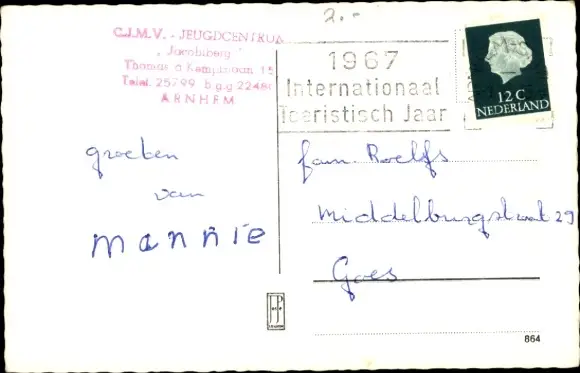 2.-
C.J.M.V. - JEUGDCENTRUM
"Jacobiberg"
Thomas a Kempislaan 15
Telef. 25799 b.g.g 22480
ARNHEM
1967
Internationaal
Toeristisch Jaar
12 C
NEDERLAND
groeten
van
mannie
fam. Roelfs
Middelburgstraat 29
Goes
864